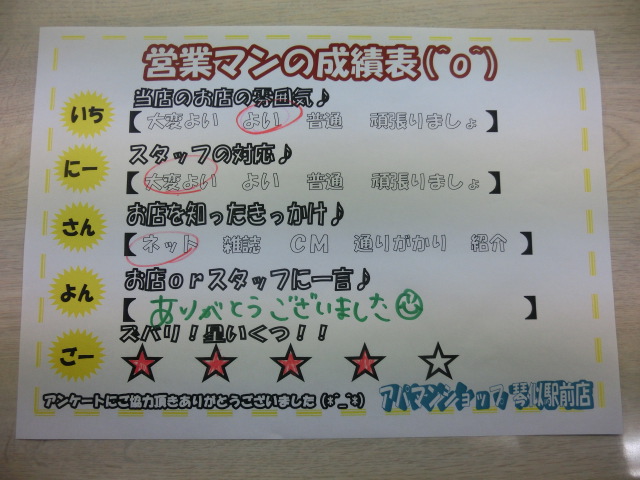 営業マンの成績表(~o~)
いち
当店のお店の雰囲気♪
【 大変よい よい 普通 頑張りましょ 】
にー
スタッフの対応♪
【 大変よい よい 普通 頑張りましょ 】
さん
お店を知ったきっかけ♪
【 ネット 雑誌 CM 通りがかり 紹介 】
よん
お店orスタッフに一言♪
【 ありがとうございました☺ 】
ごー
ズバリ!星いくつ!!
★ ★ ★ ★ ☆
アンケートにご協力頂きありがとうございました(*^_^*)
アパマンショップ琴似駅前店